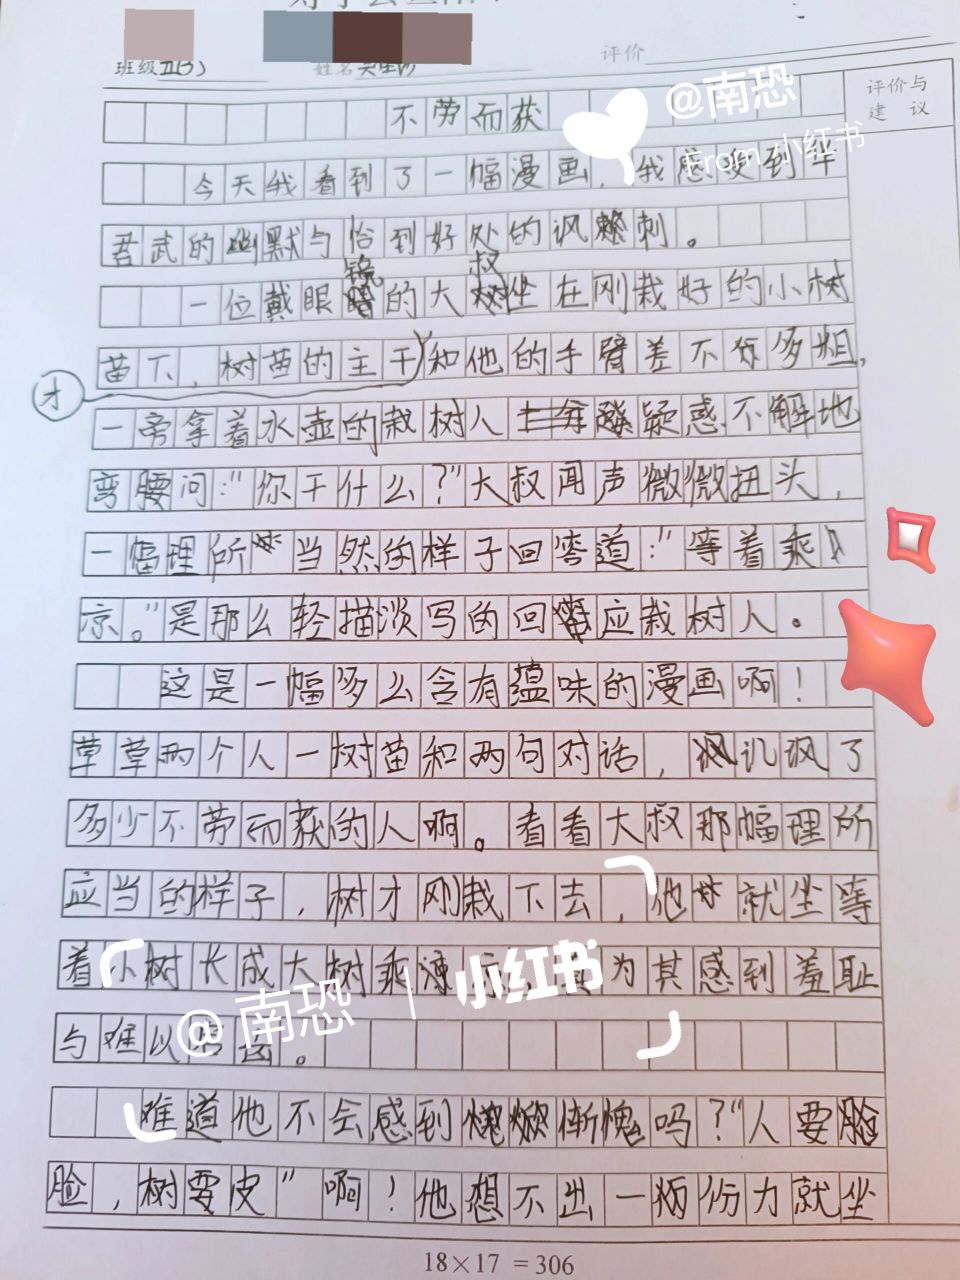 班级五(3) 姓名
评价
评价与
建 议
@南恐
From 小红书
不劳而获
今天我看到了一幅漫画，我感受到华
君武的幽默与恰到好处的讽刺。
一位戴眼镜的大叔坐在刚栽好的小树
苗下，树苗的主干才和他的手臂差不多粗，
一旁拿着水壶的栽树人疑惑不解地
弯腰问："你干什么？"大叔闻声微微扭头，
一幅理所当然的样子回答道："等着乘
凉。"是那么轻描淡写的回应栽树人。
这是一幅多么含有蕴味的漫画啊！
草草两个人一树苗和两句对话，讥讽了
多少不劳而获的人啊。看看大叔那幅理所
应当的样子，树才刚栽下去，他就坐等
着小树长成大树乘凉，真为其感到羞耻
与难以。
@南恐 | 小红书
难道他不会感到惭愧吗？"人要
脸，树要皮"啊！他想不出一份力就坐
18×17 =306